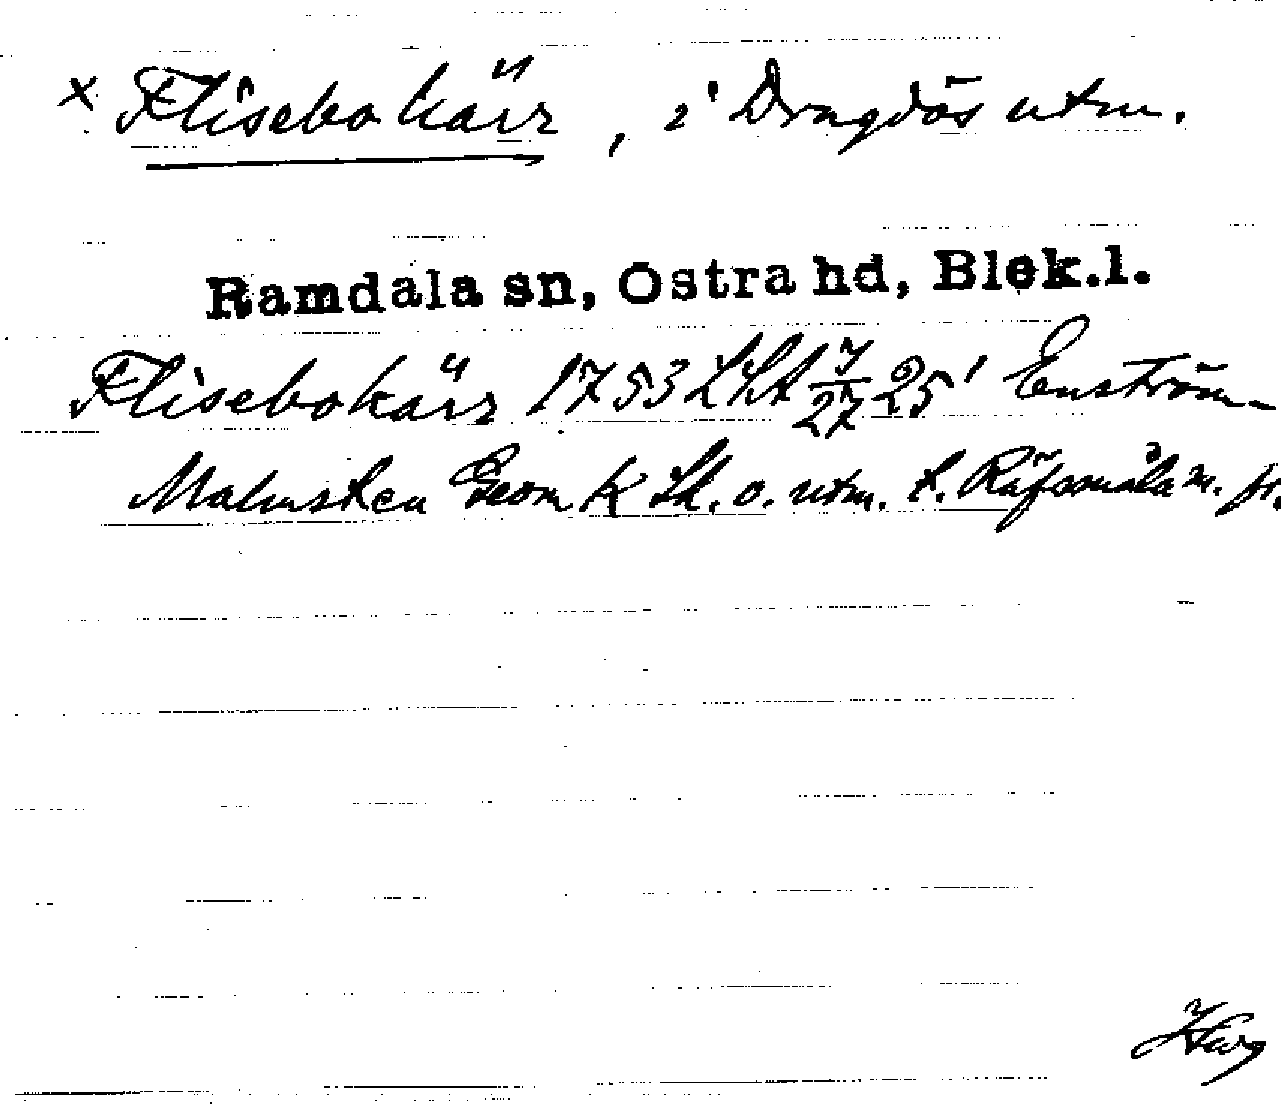 x Flisebokärr, i Dragdös utm.
Ramdala sn, Östra hd, Blek.l.
Flisebokärr 1753 LSA 7/27 25' Enström-
Malmsten Geom. k Sk. o. utm. t. Räfsmåla m. fl.